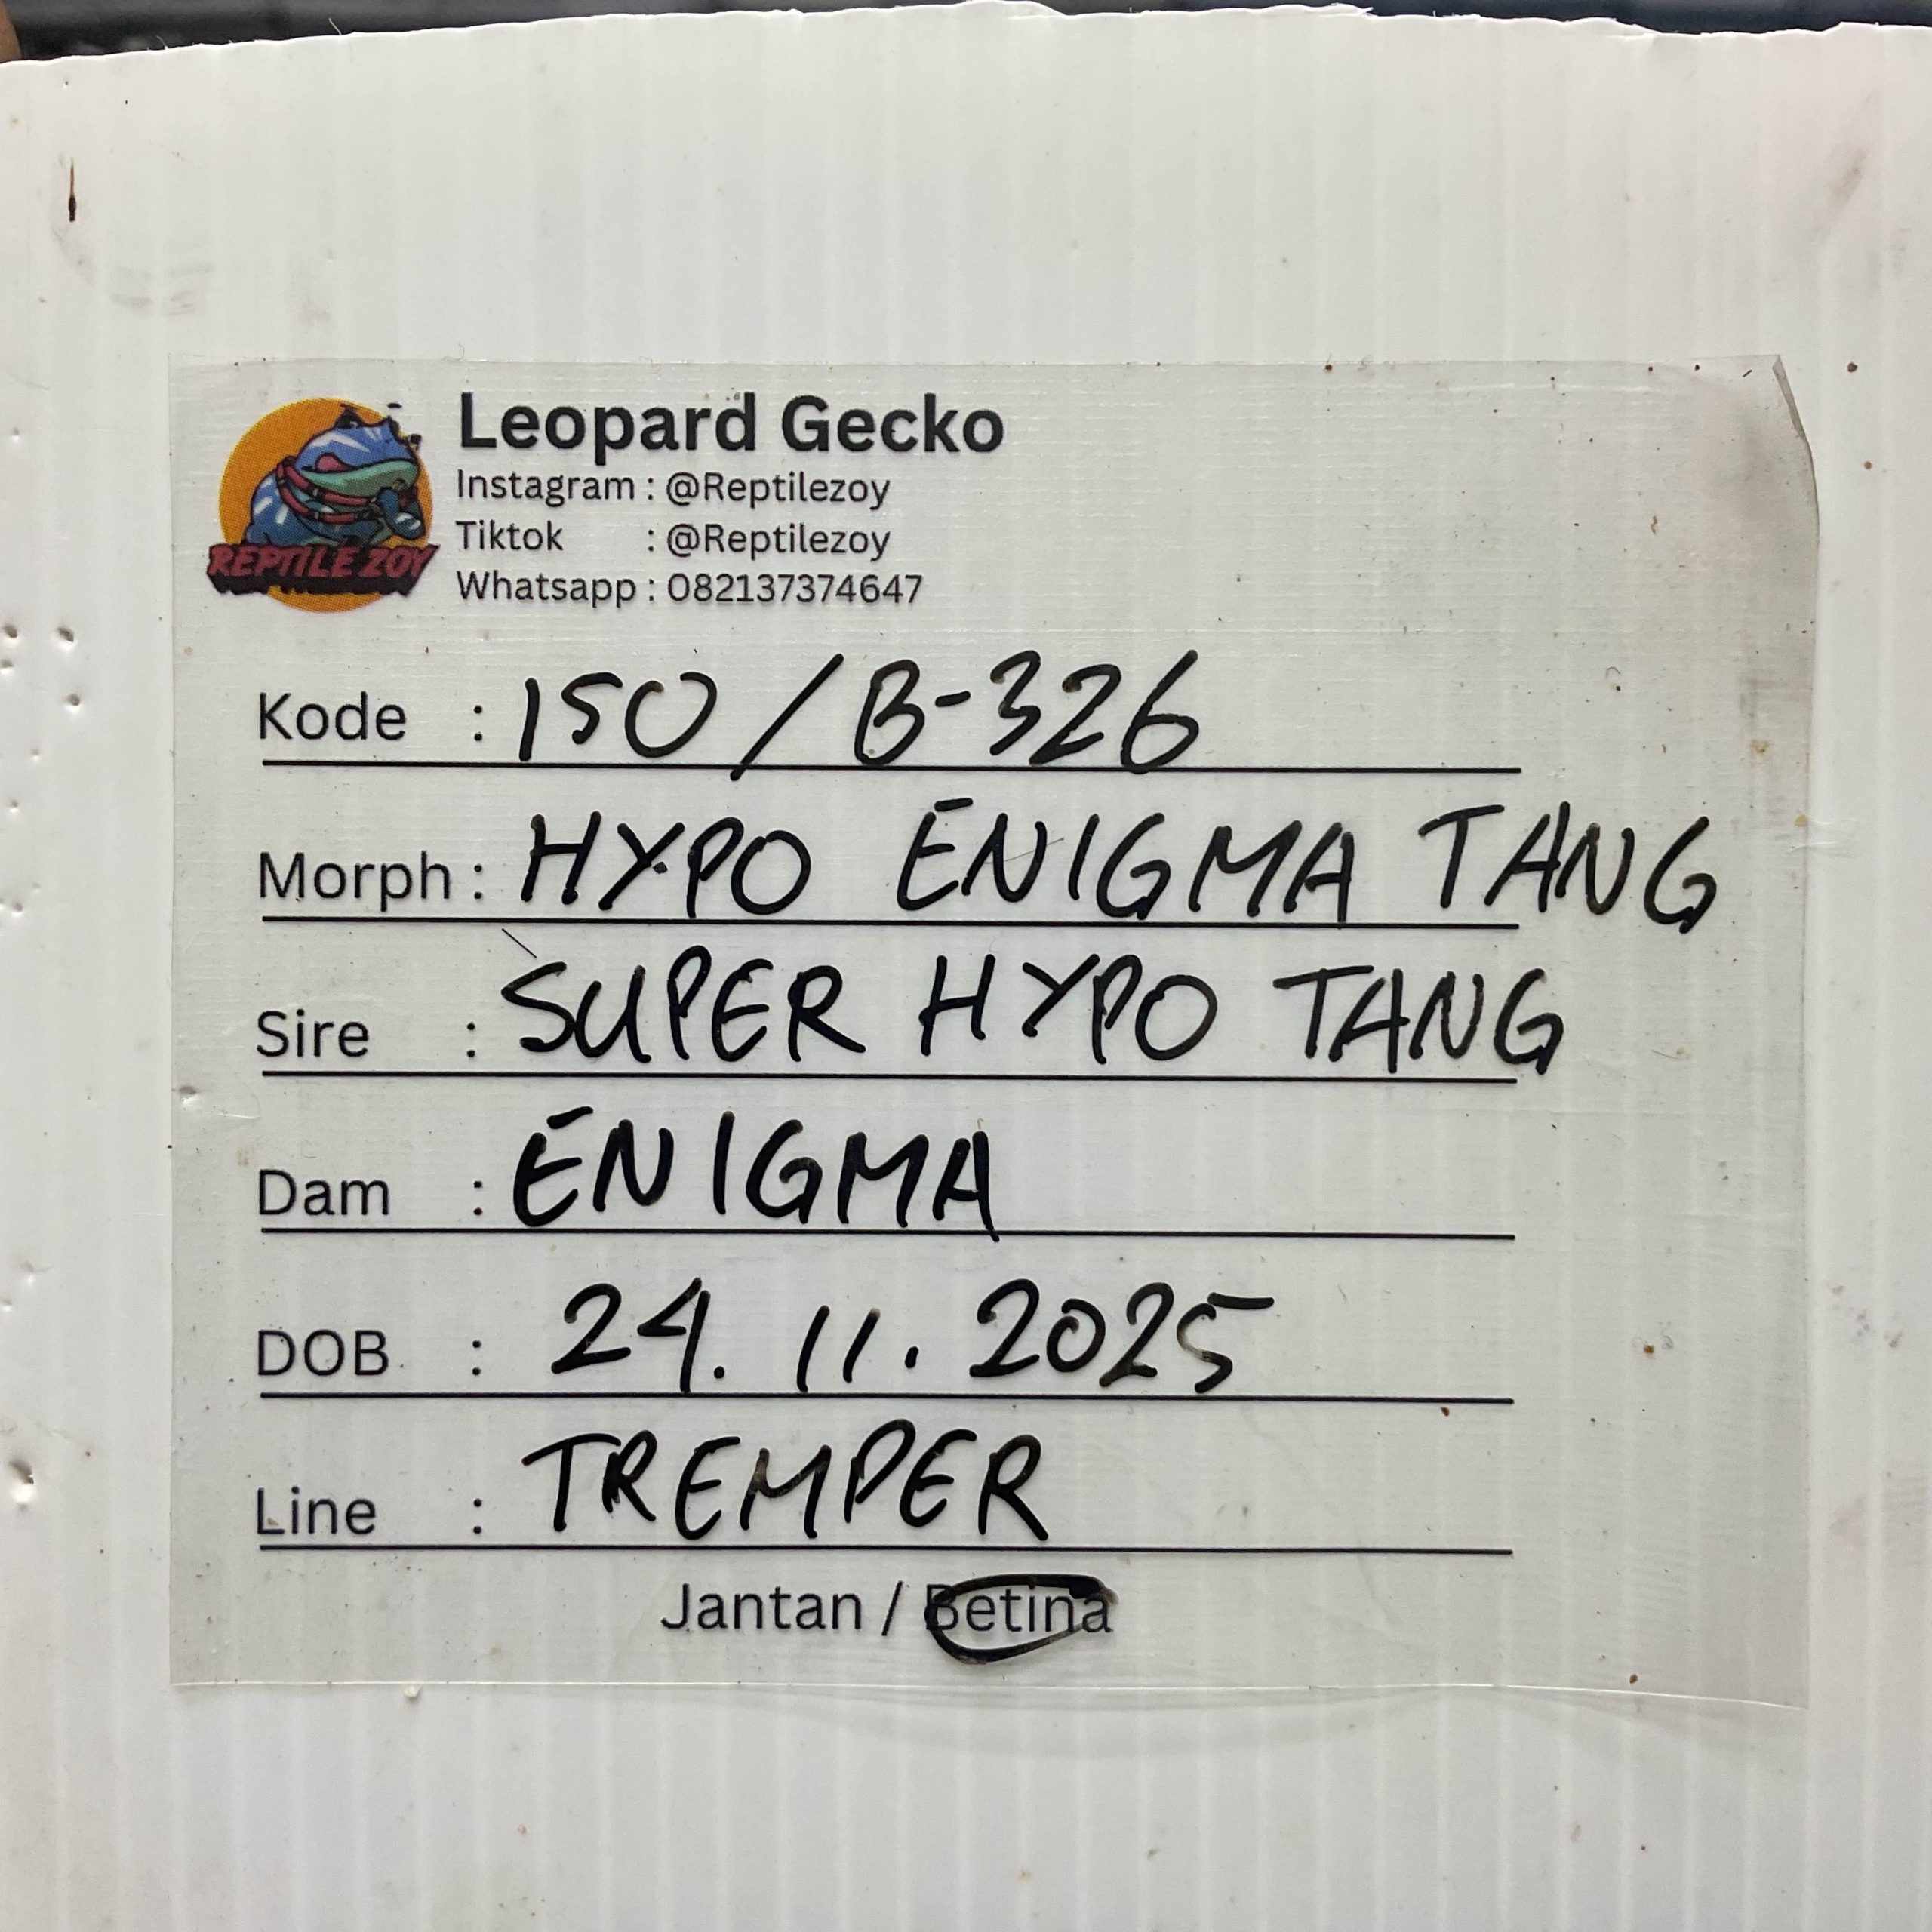 Leopard Gecko
Instagram : @Reptilezoy
Tiktok : @Reptilezoy
Whatsapp : 082137374647
REPTILE ZOY
Kode : 150 / B-326
Morph : HYPO ENIGMA TANG
Sire : SUPER HYPO TANG
Dam : ENIGMA
DOB : 24. 11. 2025
Line : TREMPER
Jantan / Betina